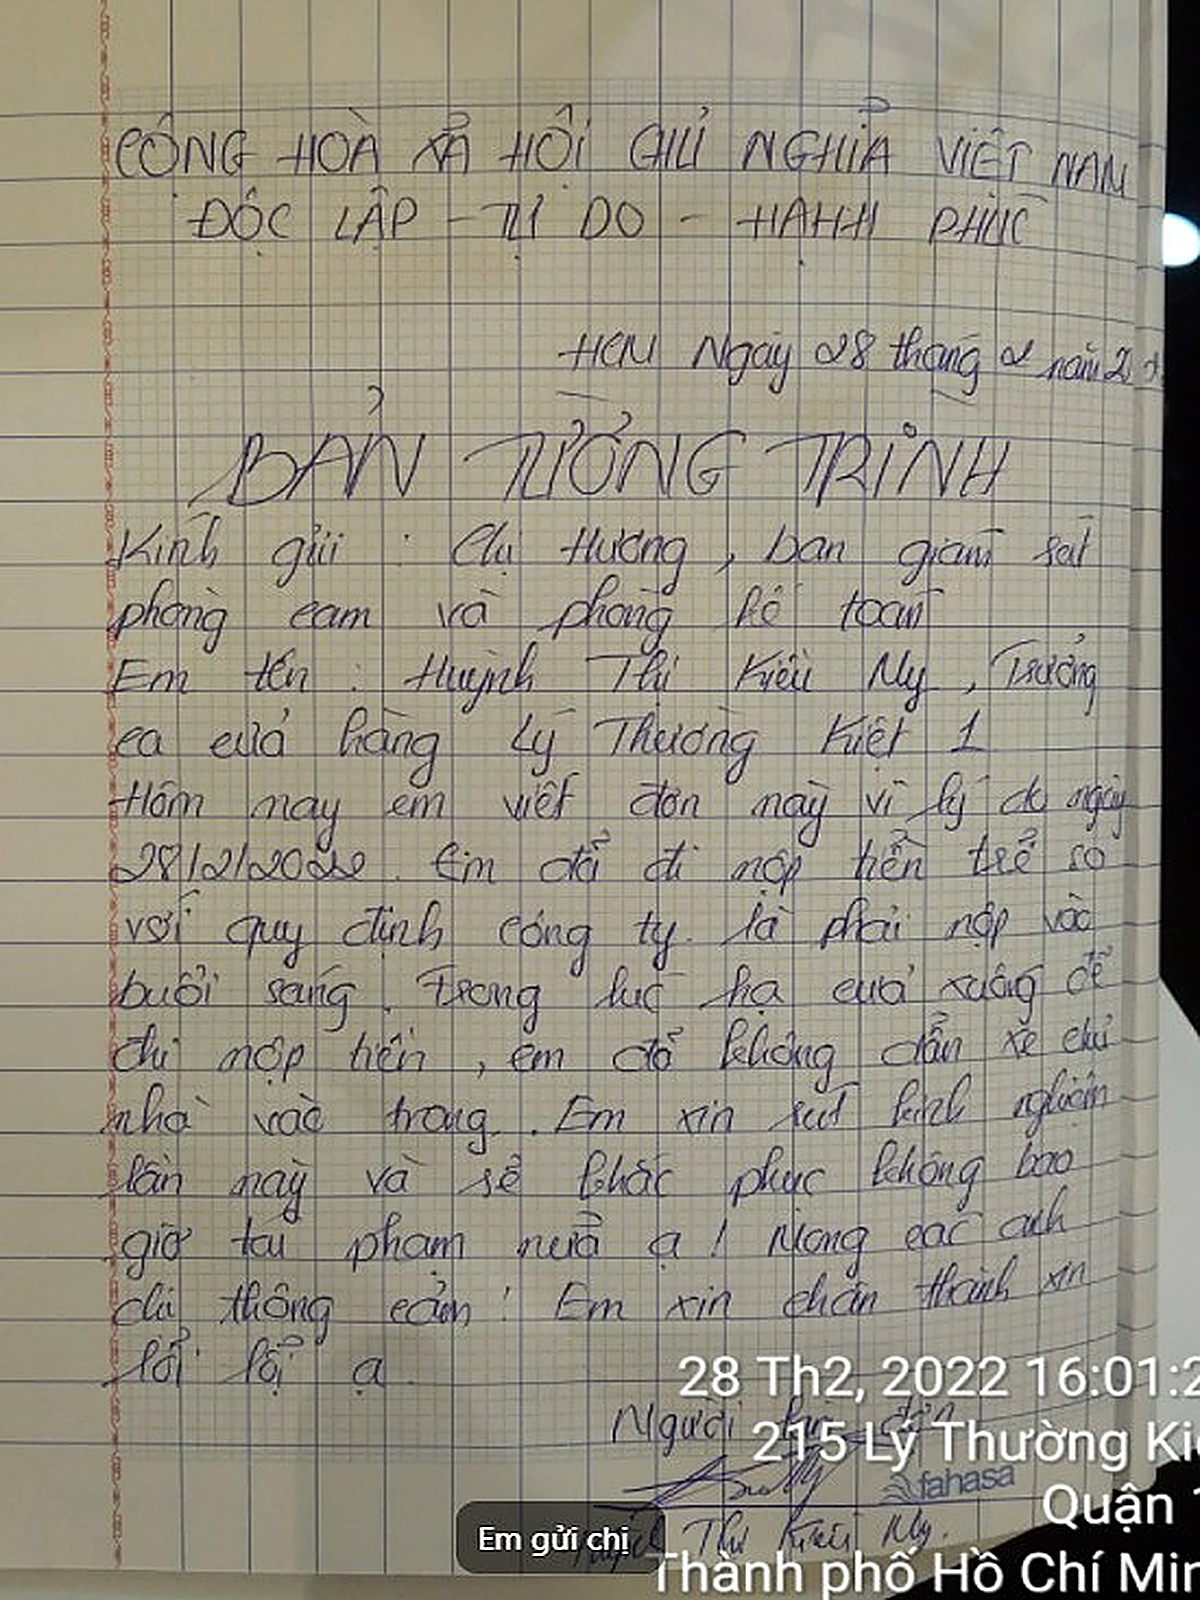 CỘNG HOÀ XẢ HỘI CHỦ NGHĨA VIỆT NAM
ĐỘC LẬP - TỰ DO - HẠHH PHÚC
HCM Ngày 28 tháng 2 năm 2
BẢN TƯỜNG TRÌNH
Kính gửi : Chị Hương, ban giám sát
phòng cam và phòng kế toán
Em tên : Huỳnh Thị Kiều My, Trưởng
ca cửa hàng Lý Thường Kiệt 1
Hôm nay em viết đơn này vì lý do ngày
28/2/2022. Em đã đi nộp tiền trể so
với quy định công ty. là phải nộp vào
buổi sáng. Trong lúc hạ cửa xuống để
đi nộp tiền, em đã không dẫn xe chủ
nhà vào trong. Em xin rút kinh nghiệm
lần này và sẽ khắc phục không bao
giờ tái phạm nữa ạ! Mong các anh
chị thông cảm! Em xin chân thành xin
lổi lội ạ.
28 Th2, 2022 16:01:2
Người làm đơn
215 Lý Thường Kiệ
fahasa
Quận 1
Em gửi chị
Thị Kiều My.
Thành phố Hồ Chí Min